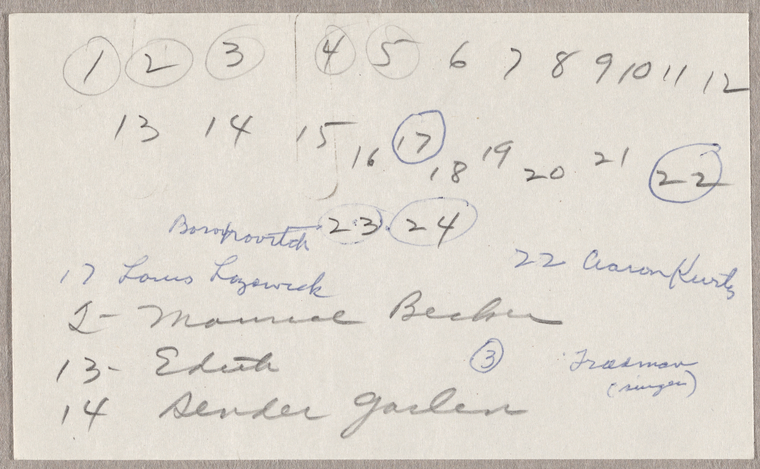 1 2 3 4 5 6 7 8 9 10 11 12
13 14 15 16 17 18 19 20 21 22
23 24
22 Aaron Kurtz
17 Louis Lozowick
2- Maurice Becker
13- Edith
3 Freedman
(singer)
14 Sender Garlin